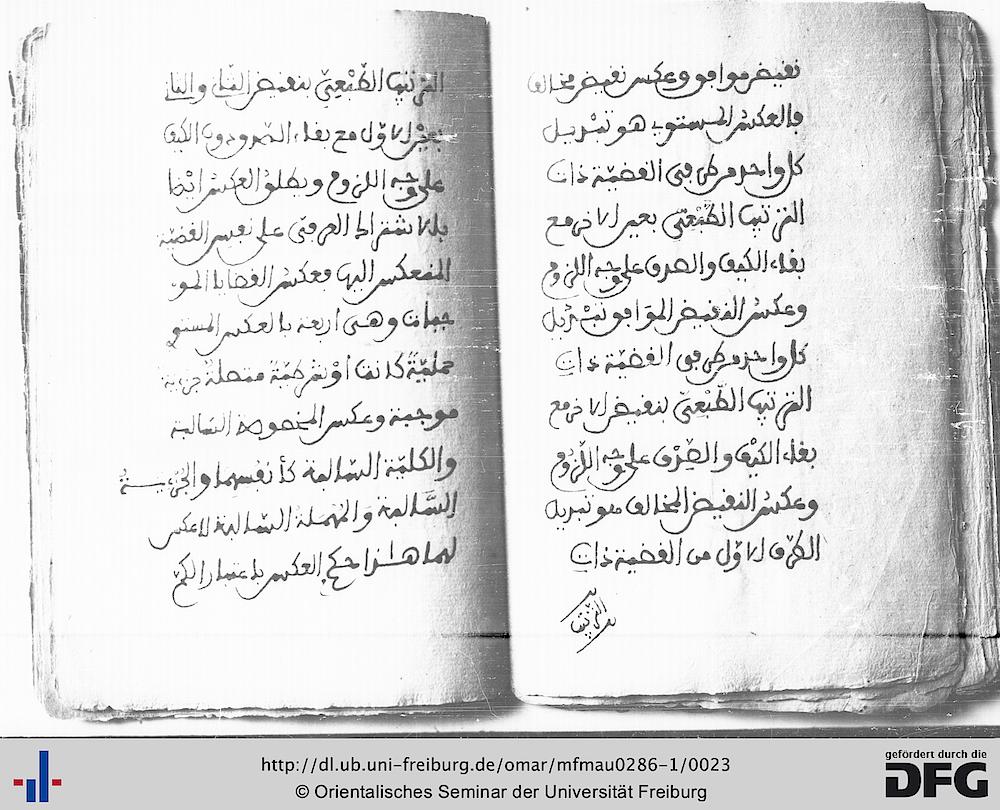 نقيض موافق وعكس نقيض مخالف
فالعكس المستوي هو تبديل
كل واحد من طرفي القضية ذات
الترتيب الطبيعي بعين الاخر مع
بقاء الكيف والصدق على وجه اللزوم
وعكس النقيض الموافق تبديل
كل واحد من طرفي القضية ذات
الترتيب الطبيعي بنقيض الاخر مع
بقاء الكيف والصدق على وجه اللزوم
وعكس النقيض المخالف هو تبديل
الطرف الاول من القضية ذات
الترتيب
الترتيب الطبيعي بنقيض الثاني والثاني
بعين الاول مع بقاء الصدق دون الكيف
على وجه اللزوم ويطلق العكس ايضا
بالاشتراك العرفي على نفس القضية
المنعكس اليها فعكس القضايا المو
جبات وهي اربعة بالعكس المستوي
حملية كانت او شرطية متصلة جزئية
موجبة وعكس المخصوصة السالبة
والكلية السالبة كأنفسهما والجزئية
السالبة والمهملة السالبة لا عكس
لهما هذا حكم العكس باعتبار الكم
http://dl.ub.uni-freiburg.de/omar/mfmau0286-1/0023
© Orientalisches Seminar der Universität Freiburg
gefördert durch die
DFG